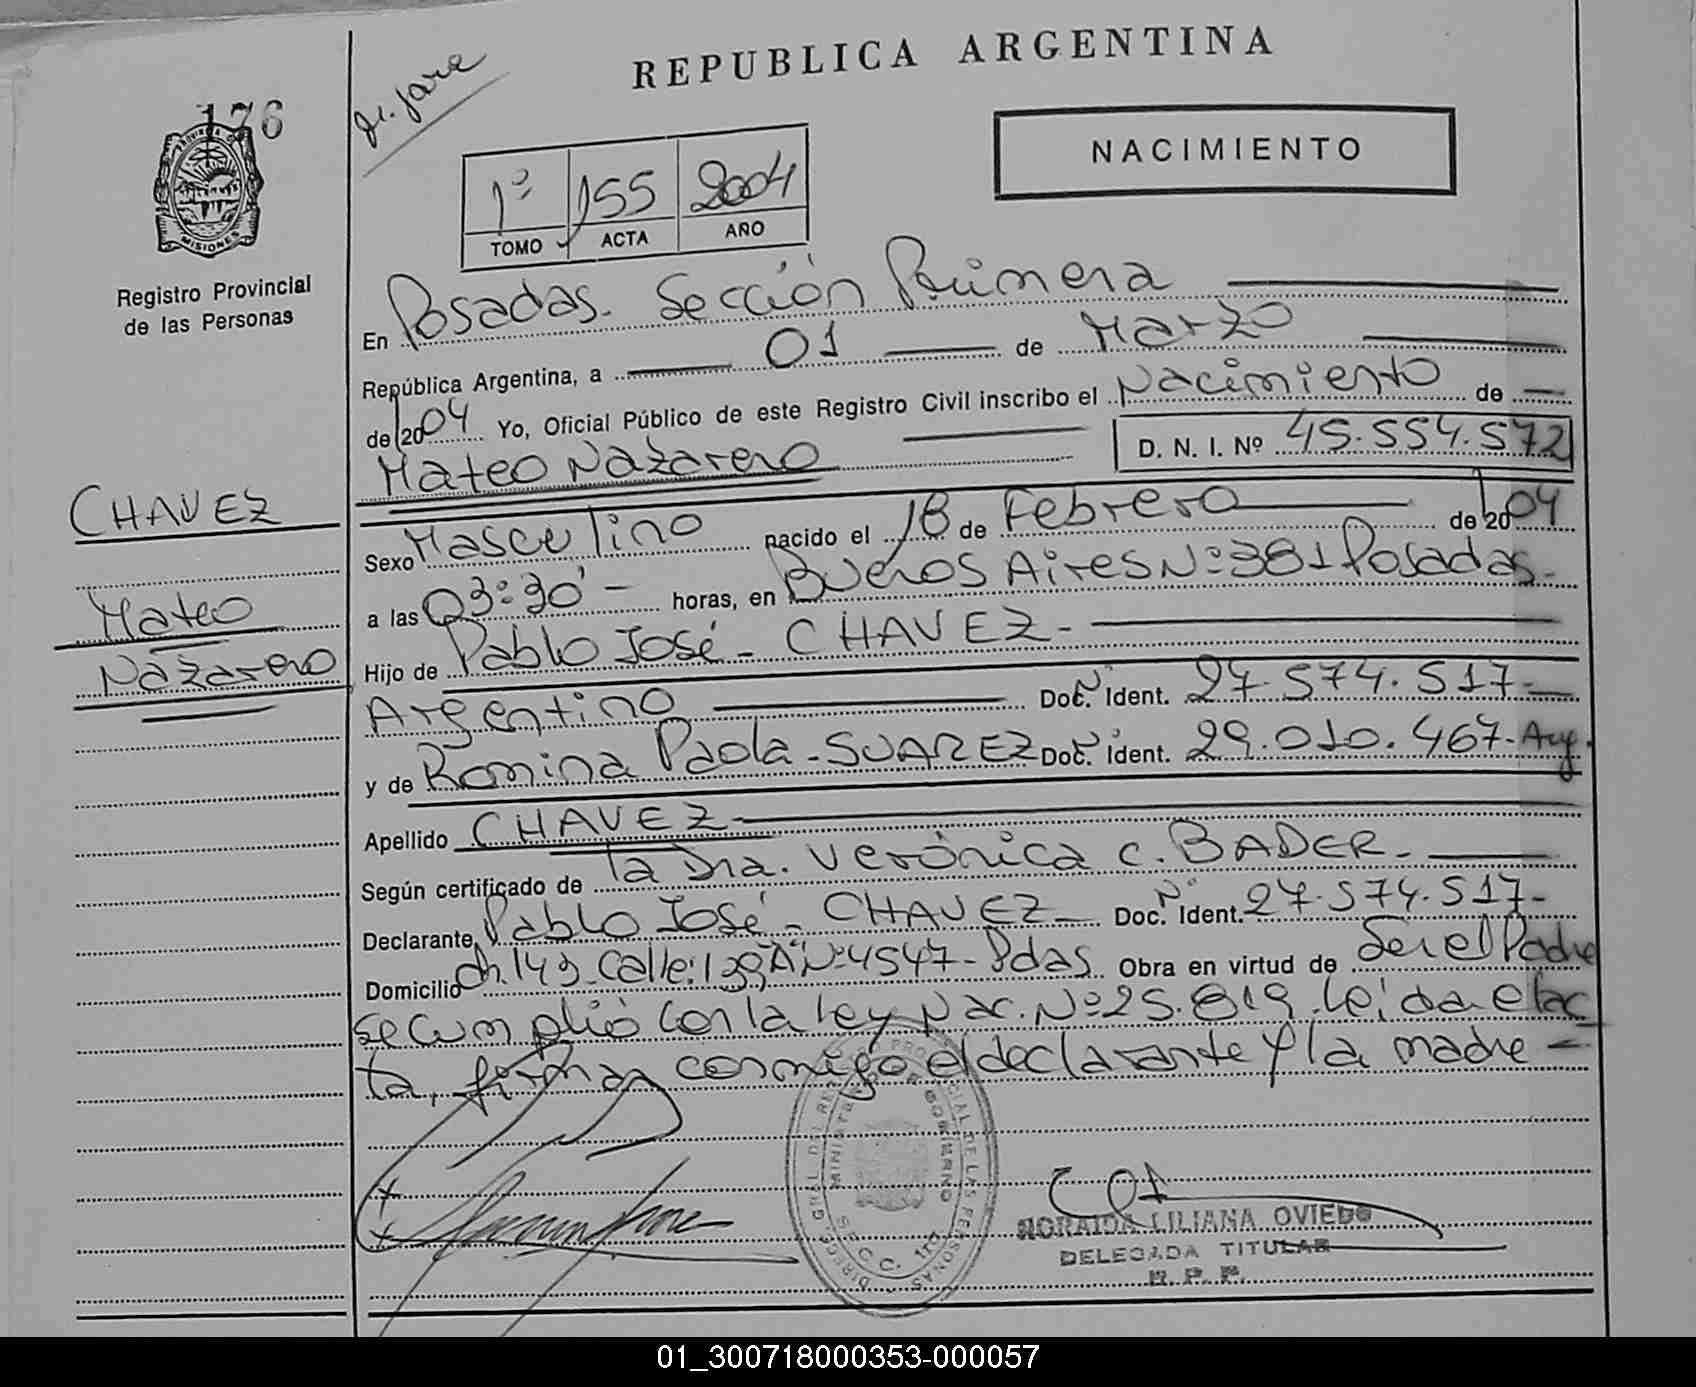 REPUBLICA ARGENTINA
176
PROVINCIA DE
MISIONES
Registro Provincial
de las Personas
NACIMIENTO
1º 155 2004
TOMO ACTA AÑO
En Posadas. Sección Primera
República Argentina, a 01 de Marzo
de 2004 Yo, Oficial Público de este Registro Civil inscribo el Nacimiento de
Mateo Nazareno D. N. I. Nº 45.554.572
CHAVEZ
Mateo
Nazareno
Sexo Masculino nacido el 18 de Febrero de 2004
a las 03:30' - horas, en Buenos Aires Nº 381 Posadas.
Hijo de Pablo José - CHAVEZ -
Argentino Doc. Nº Ident. 27.574.517-
y de Romina Paola - SUAREZ Doc. Nº Ident. 29.010.467- Arg.
Apellido CHAVEZ
Según certificado de la Dra. Verónica C. BADER.
Declarante Pablo José - CHAVEZ Doc. Nº Ident. 27.574.517-
Domicilio ch. 149 Calle: 139 A Nº 4547 - Pdas Obra en virtud de Ser el Padre
se cumplió con la ley Nac. Nº 25.819. Leída el ac
ta, firman conmigo el declarante y la madre =
ZORAIDA LILIANA OVIEDO
DELEGADA TITULAR
R. P. P.
01_300718000353-000057